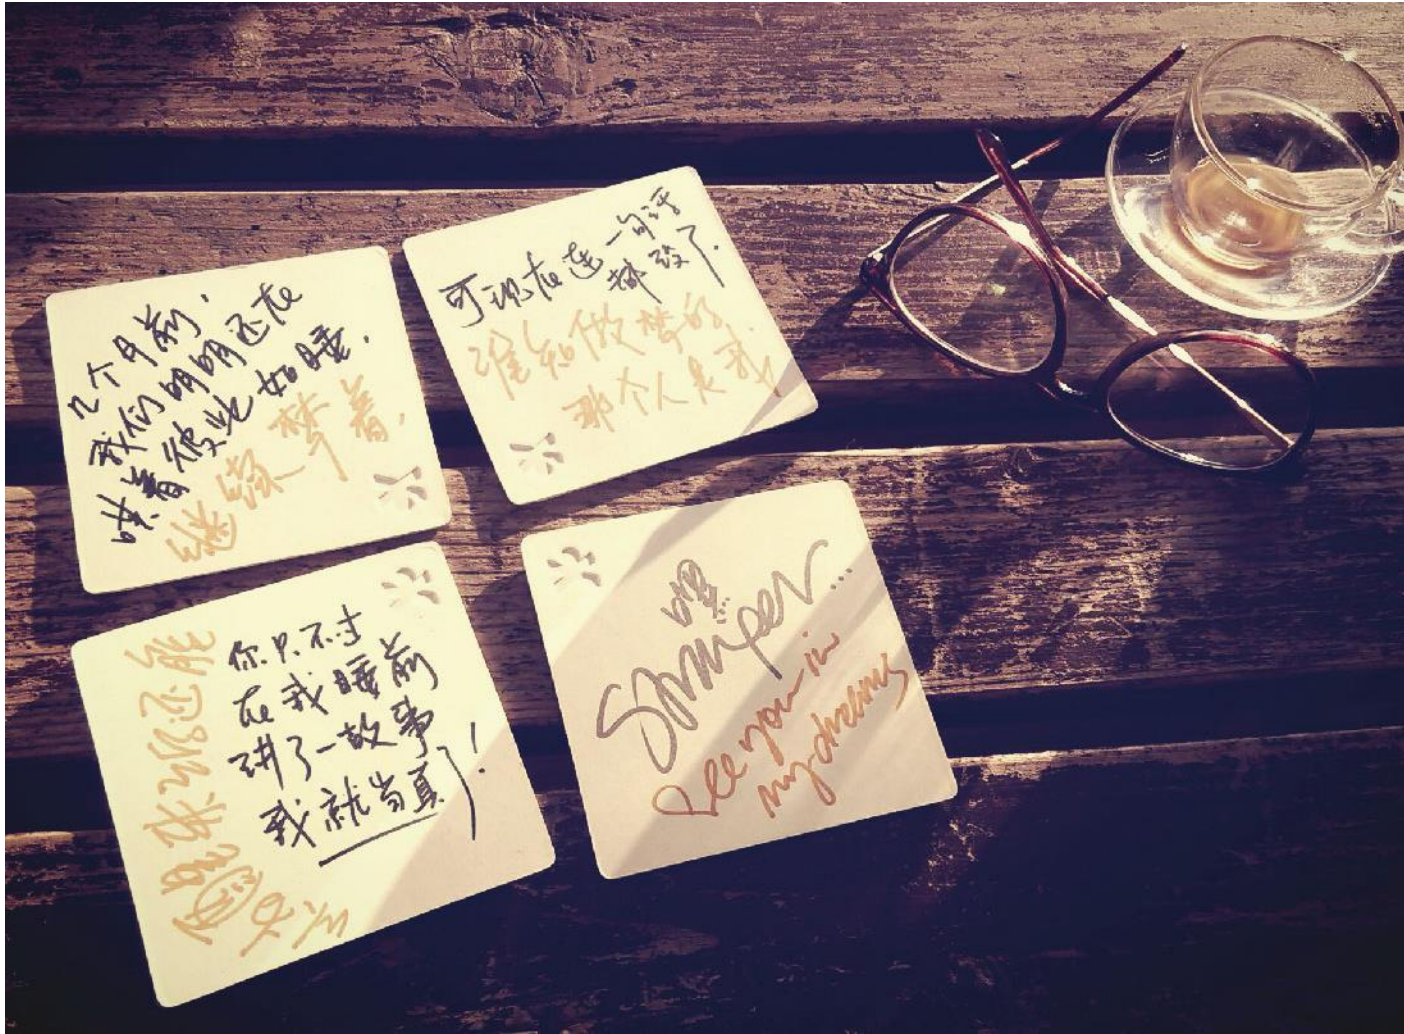 几个月前,
我们明明还在
哄着彼此如睡.
继续梦着,
可现在连一句话
都没了.
谁知做梦的
那个人是我
你只不过
在我睡前
讲了一故事
我就当真了!
See you in
my dreams